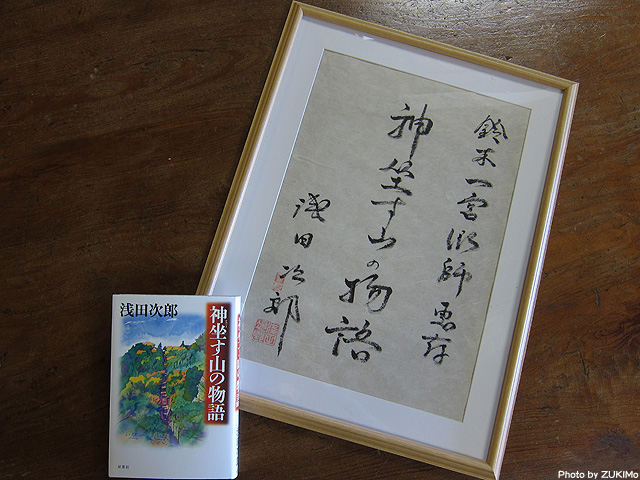 鈴木一宮御師
神坐す山の物語
浅田次郎
浅田次郎
神坐す山の物語
双葉社
Photo by ZUKIMo